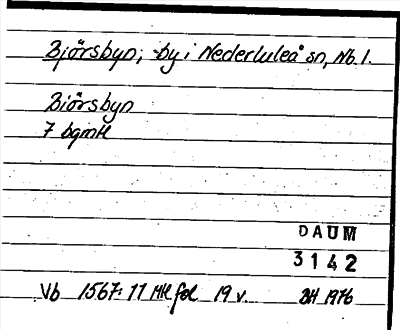 Björsbyn; by i Nederluleå sn, Nb. l.
Biörsbyn
7 bgmtl
DAUM
3142
Vb 1567: 11 Mtl fol 19 v. BH 1976